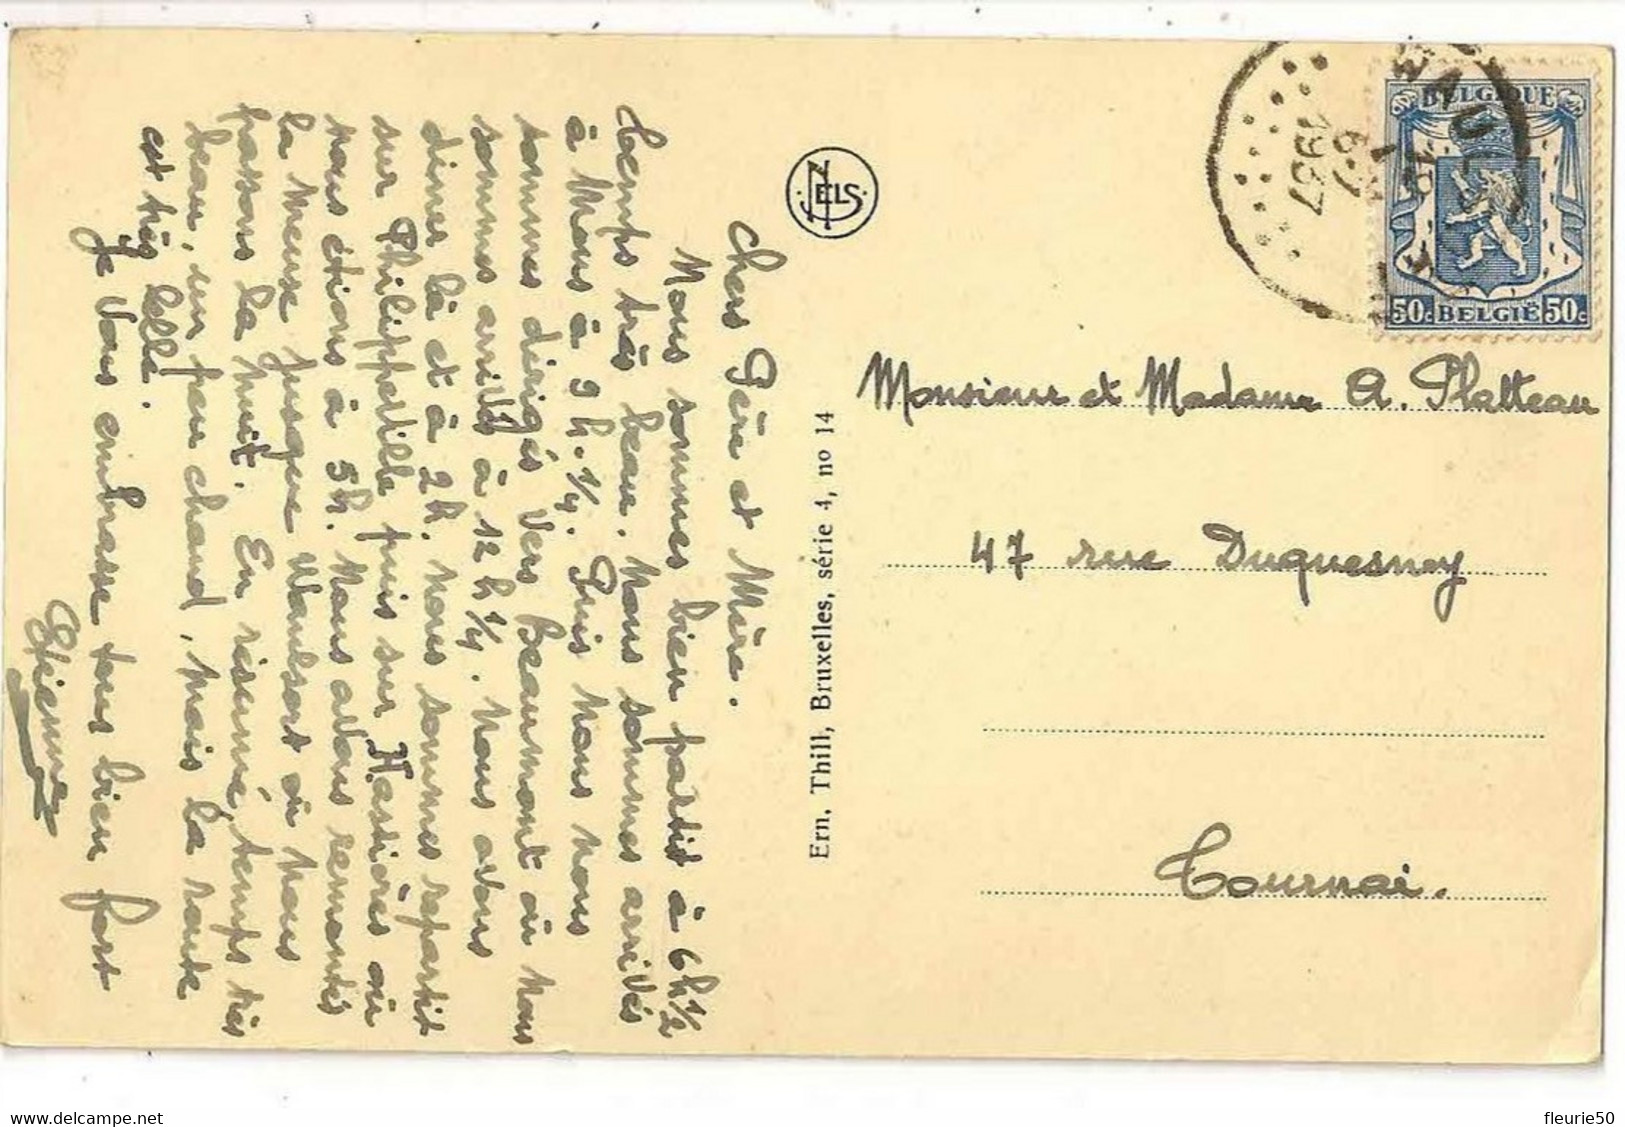 Chers Père et Mère.
Nous sommes bien partis à 6h½
temps très beau. Nous sommes arrivés
à Mons à 9 h. ¼. Puis nous nous
sommes dirigés vers Beaumont où nous
sommes arrivés à 12 h ¼. Nous avons
dîner là et à 2 h. nous sommes repartit
sur Philippeville puis sur Hastières où
nous étions à 5h. Nous avons remontés
la Meuse jusque Waulsort où nous
passons la nuit. En résumé, temps très
beau, un peu chaud, mais la route
est très belle.
Je vous embrasse tous bien fort
Etienne
NELS
Ern. Thill, Bruxelles, série 4, no 14
WAULSORT
6-7
1937
BELGIQUE
50c BELGIË 50c
Monsieur et Madame A. Platteau
47 rue Duquesnoy
Tournai.
fleurie50